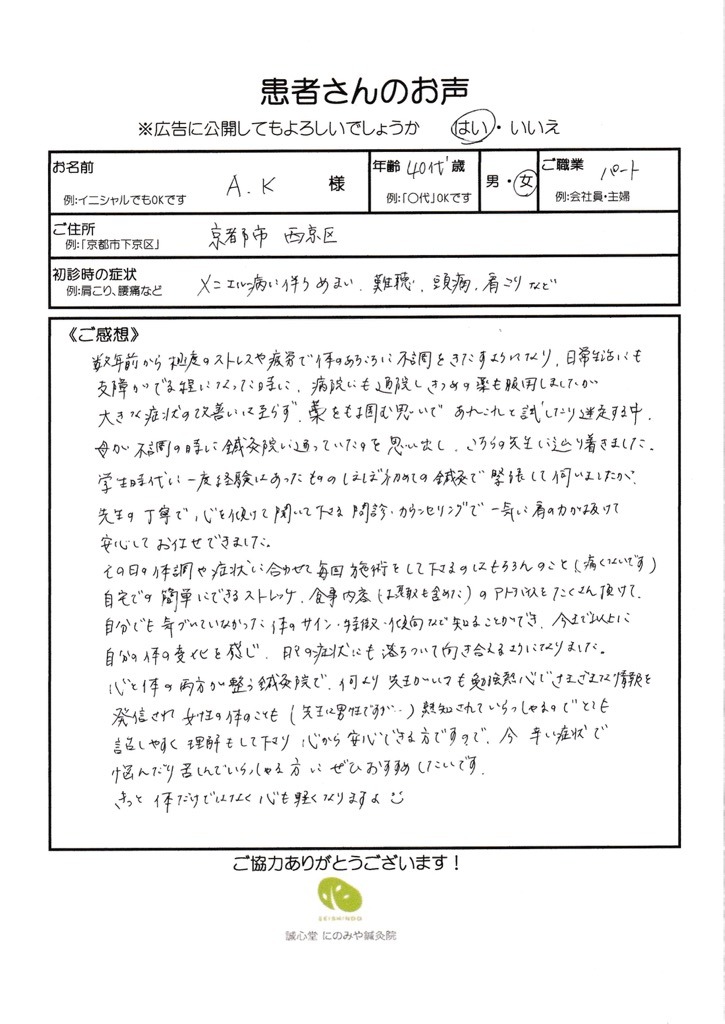 患者さんのお声
※広告に公開してもよろしいでしょうか はい・いいえ
お名前 A.K 様 年齢 40代 歳 男・女 ご職業 パート
例:イニシャルでもOKです 例:「〇代」OKです 例:会社員・主婦
ご住所 京都市 西京区
例:「京都市下京区」
初診時の症状 メニエル病に伴うめまい、難聴、頭痛、肩こりなど
例:肩こり、腰痛など
《ご感想》
数年前から極度のストレスや疲労で体のあちこちに不調をきたすようになり、日常生活にも
支障がでる程になった時に、病院にも通院しきつめの薬も服用しましたが
大きな症状の改善には至らず、藁をも掴む思いであれこれと試したり迷走する中、
母が不調の時に鍼灸院に通っていたのを思い出し、こちらの先生に辿り着きました。
学生時代に一度経験はあったもののほぼ初めての鍼灸で緊張して伺いましたが、
先生の丁寧で心を傾けて聞いて下さる問診・カウンセリングで一気に肩の力が抜けて
安心してお任せできました。
その日の体調や症状に合わせて毎回施術をして下さるのはもちろんのこと、(痛くないです)
自宅での簡単にできるストレッチ、食事内容(も含めた)のアドバイスをたくさん頂けて、
自分でも気づいていなかった体のサイン・特徴・傾向など知ることができ、今まで以上に
自分の体の変化を感じ、日々の症状にも落ちついて向き合えるようになりました。
心と体の両方が整う鍼灸院で、何より先生がいつも勉強熱心でさまざまな情報を
発信され女性の体のことも(先生は男性ですが…)熟知されていらっしゃるのでとても
話しやすく理解もして下さり心から安心できる方ですので、今辛い症状で
悩んだり苦しんでいらっしゃる方にぜひおすすめしたいです。
きっと体だけではなく心も軽くなりますよ☺
ご協力ありがとうございます！
SEISHINDO
誠心堂 にのみや鍼灸院